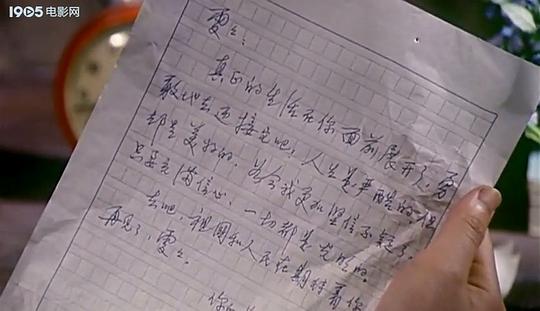 1905电影网
雯雯：
真正的生活在你面前展开了，勇
敢地去迎接它吧！人生是严酷的，但
却是美好的。
我更加坚信不疑了，
只要充满信心，一切都是光明的。
去吧，祖国和人民在期待着你
再见了，雯雯。
你的